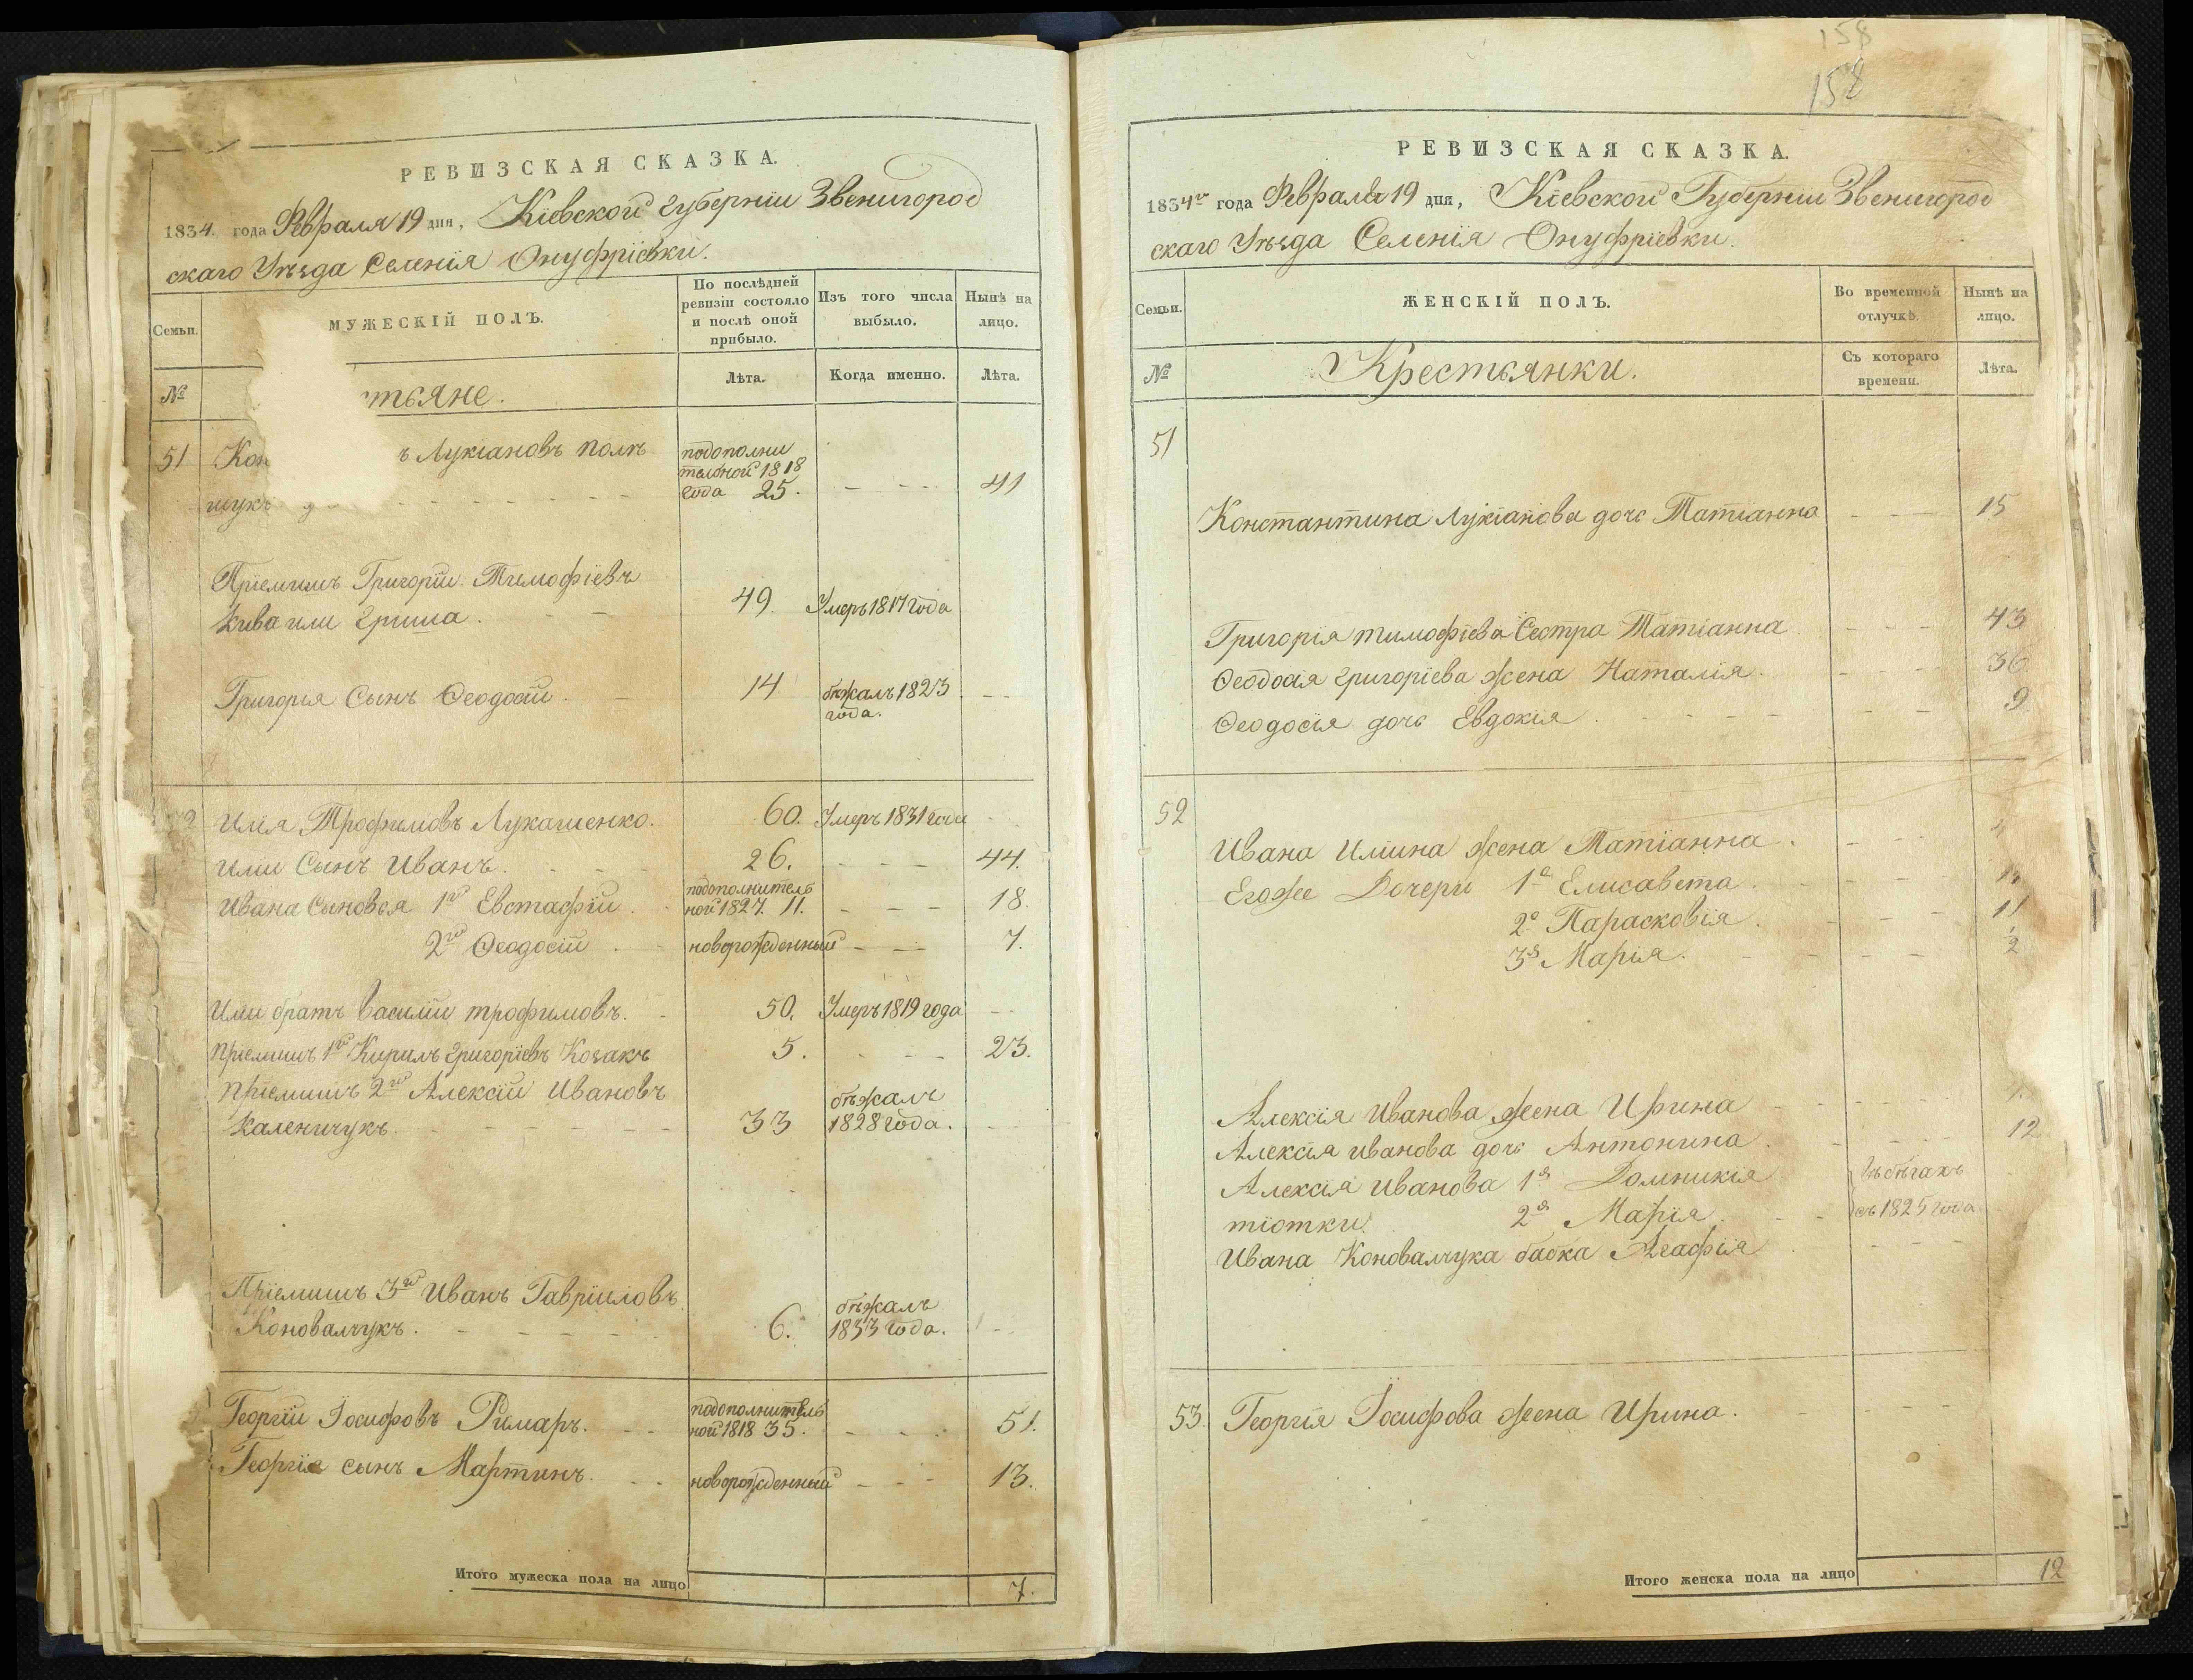 РЕВИЗСКАЯ СКАЗКА.
1834. года Февраля 19 дня, Кіевской губерніи Звенигород
скаго Уѣзда Селенія Онуфріевки.
Семьи. МУЖЕСКІЙ ПОЛЪ. По послѣдней ревизіи состояло и послѣ оной прибыло. Изъ того числа выбыло. Нынѣ на лицо.
№ стьяне. Лѣта. Когда именно. Лѣта.
51 Кон ъ Лукіановъ Полѣ подополни
щукъ тельной 1818
года 25. 41
Пріемышъ Григорій Тимофіевъ
Кива или Гриша. 49. Умеръ 1817 года
Григорія Сынъ Феодосій. 14 бѣжалъ 1823
года.
2 Илія Трофимовъ Лукашенко. 60. Умеръ 1831 года
Иліи Сынъ Иванъ. 26. 44.
Ивана Сыновья 1й Евстафій подополнитель
ной 1827. 11. 18.
2й Феодосій новорожденный 7.
Иліи братъ Василій трофимовъ. 50. Умеръ 1819 года
Пріемышъ 1й Кирилъ Григоріевъ Козакъ 5. 23.
Пріемышъ 2й Алексій Ивановъ
Каленичукъ. 33 бѣжалъ
1828 года.
Пріемышъ 3й Иванъ Гавріиловъ
Коновалчукъ. 6. бѣжалъ
1833 года.
Георгій Іосифовъ Римаръ. подополнитель
ной 1818 35. 51.
Георгія сынъ Мартинъ. новорожденный 13.
Итого мужеска пола на лицо 7.
158
158
РЕВИЗСКАЯ СКАЗКА.
1834го года Февраля 19 дня, Кіевской Губерніи Звенигород
скаго Уѣзда Селенія Онуфріевки.
Семьи. ЖЕНСКІЙ ПОЛЪ. Во временной отлучкѣ. Нынѣ на лицо.
№ Крестьянки. Съ котораго времени. Лѣта.
51
Константина Лукіанова дочь Татіанна 15
Григорія тимофіева Сестра Татіанна 43
Феодосія григоріева жена Наталія. 36
Феодосія дочь Евдокія 9
52
Ивана Иліина жена Татіанна.
Егоже Дочери 1я Елисавета.
2я Парасковія. 11
3я Марія. 1/2
Алексія Иванова жена Ирина
Алексія иванова дочь Антонина. 12
Алексія Иванова 1я Домникія Въ бѣгахъ
тіотки 2я Марія съ 1825 года
Ивана Коновалчука бабка Агафія
53. Георгія Іосифова жена Ирина.
Итого женска пола на лицо 12